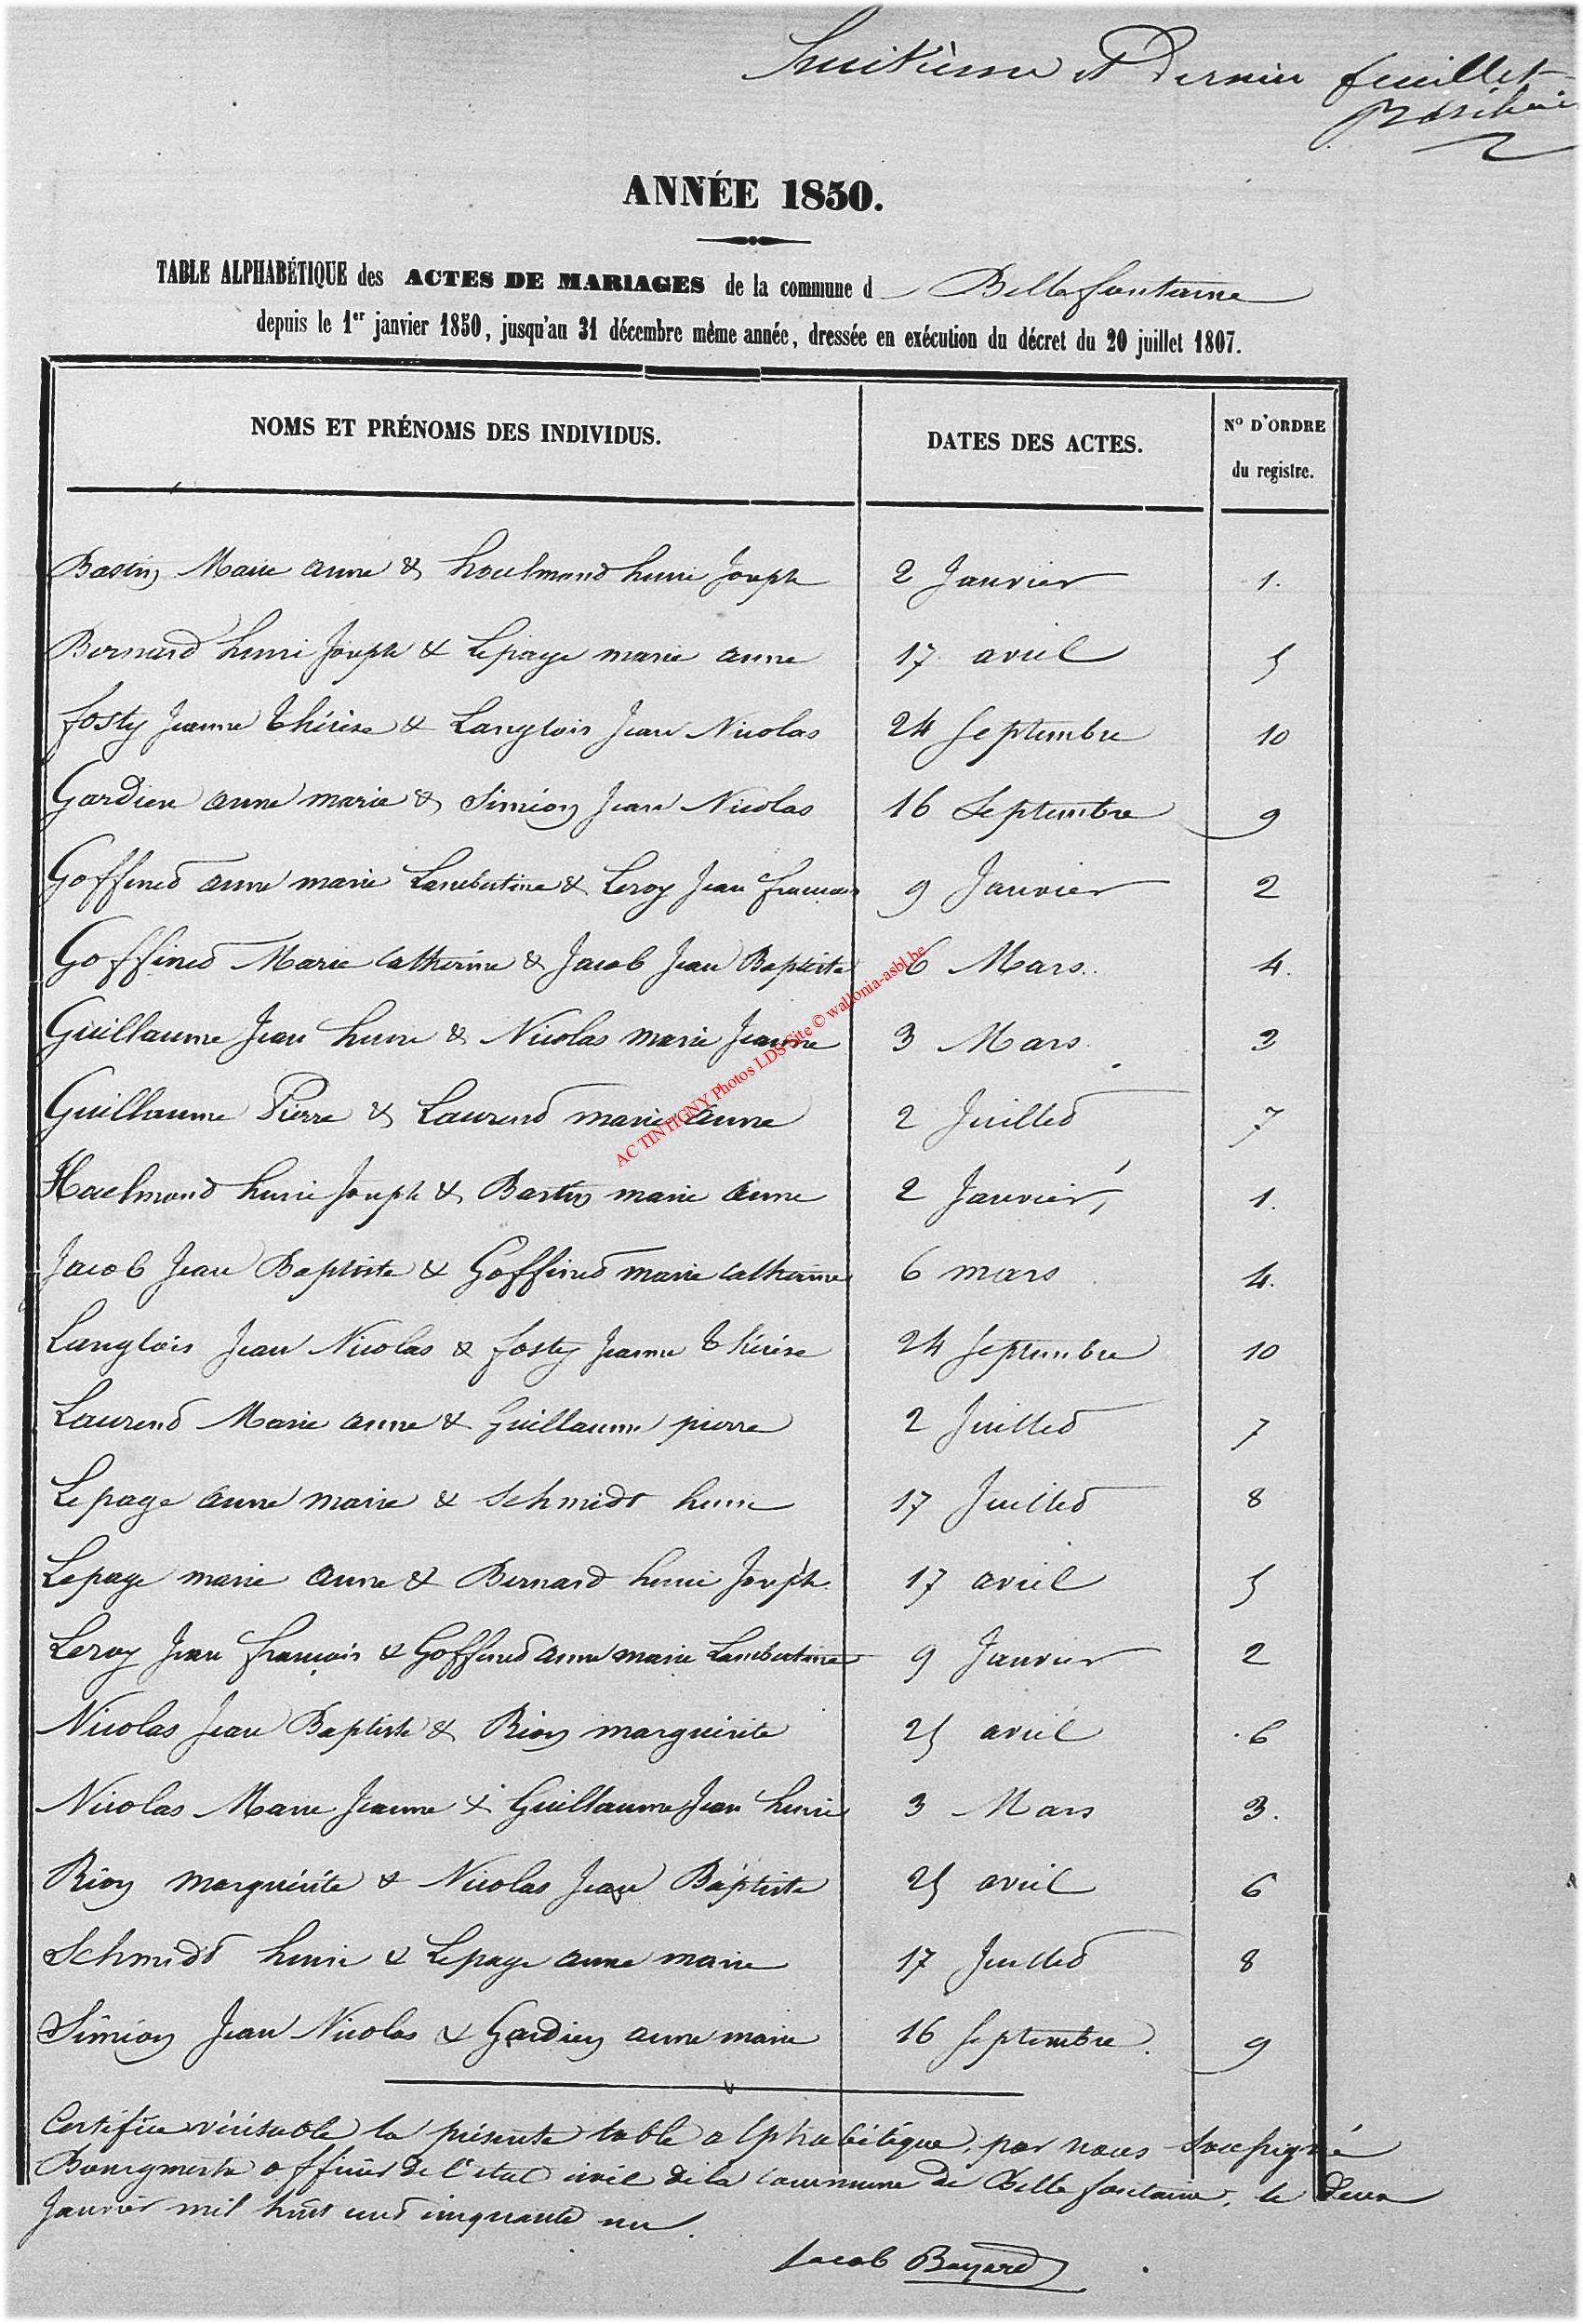 huitième et Dernier feuillet
ANNÉE 1850.
TABLE ALPHABÉTIQUE des ACTES DE MARIAGES de la commune d Bellefontaine
depuis le 1er janvier 1850, jusqu'au 31 décembre même année, dressée en exécution du décret du 20 juillet 1807.
NOMS ET PRÉNOMS DES INDIVIDUS. DATES DES ACTES. No D'ORDRE
du registre.
Bastin Marie anne & houlmond henri Joseph 2 Janvier 1.
Bernard henri Joseph & Lepage marie anne 17 avril 5
fosty Jeanne thérèse & Langlois Jean Nicolas 24 Septembre 10
Gardien anne marie & Siméon Jean Nicolas 16 Septembre 9
Goffined anne marie Lambertine & Leroy Jean francois 9 Janvier 2
Goffined Marie Catherine & Jacob Jean Baptiste 6 Mars. 4.
Guillaume Jean henri & Nicolas marie Jeanne 3 Mars 3
Guillaume Pierre & Laurend marie anne 2 Juilled 7
AC TINTIGNY Photos LDS Site © wallonia-asbl.be
Houlmond henri Joseph & Bastin marie anne 2 Janvier 1.
Jacob Jean Baptiste & Goffined marie Catherine 6 mars 4.
Langlois Jean Nicolas & fosty Jeanne thérèse 24 Septembre 10
Laurend Marie anne & Guillaume pierre 2 Juilled 7
Lepage anne marie & Schmidt henri 17 Juilled 8
Lepage marie anne & Bernard henri Joseph. 17 avril 5
Leroy Jean françois & Goffined anne marie Lambertine 9 Janvier 2
Nicolas Jean Baptiste & Rion marguérite 25 avril 6
Nicolas Marie Jeanne & Guillaume Jean henri 3 Mars 3.
Rion marguérite & Nicolas Jean Baptiste 25 avril 6
Schmidt henri & Lepage anne marie 17 Juilled 8
Siméon Jean Nicolas & Gardien anne marie 16 Septembre. 9
Certifiée véritable la présente table alphabétique, par nous soussigné
Bourgmestre officier de l'état civil de la commune de Bellefontaine, le deux
Janvier mil huit cent cinquante un.
Jacob Bayard